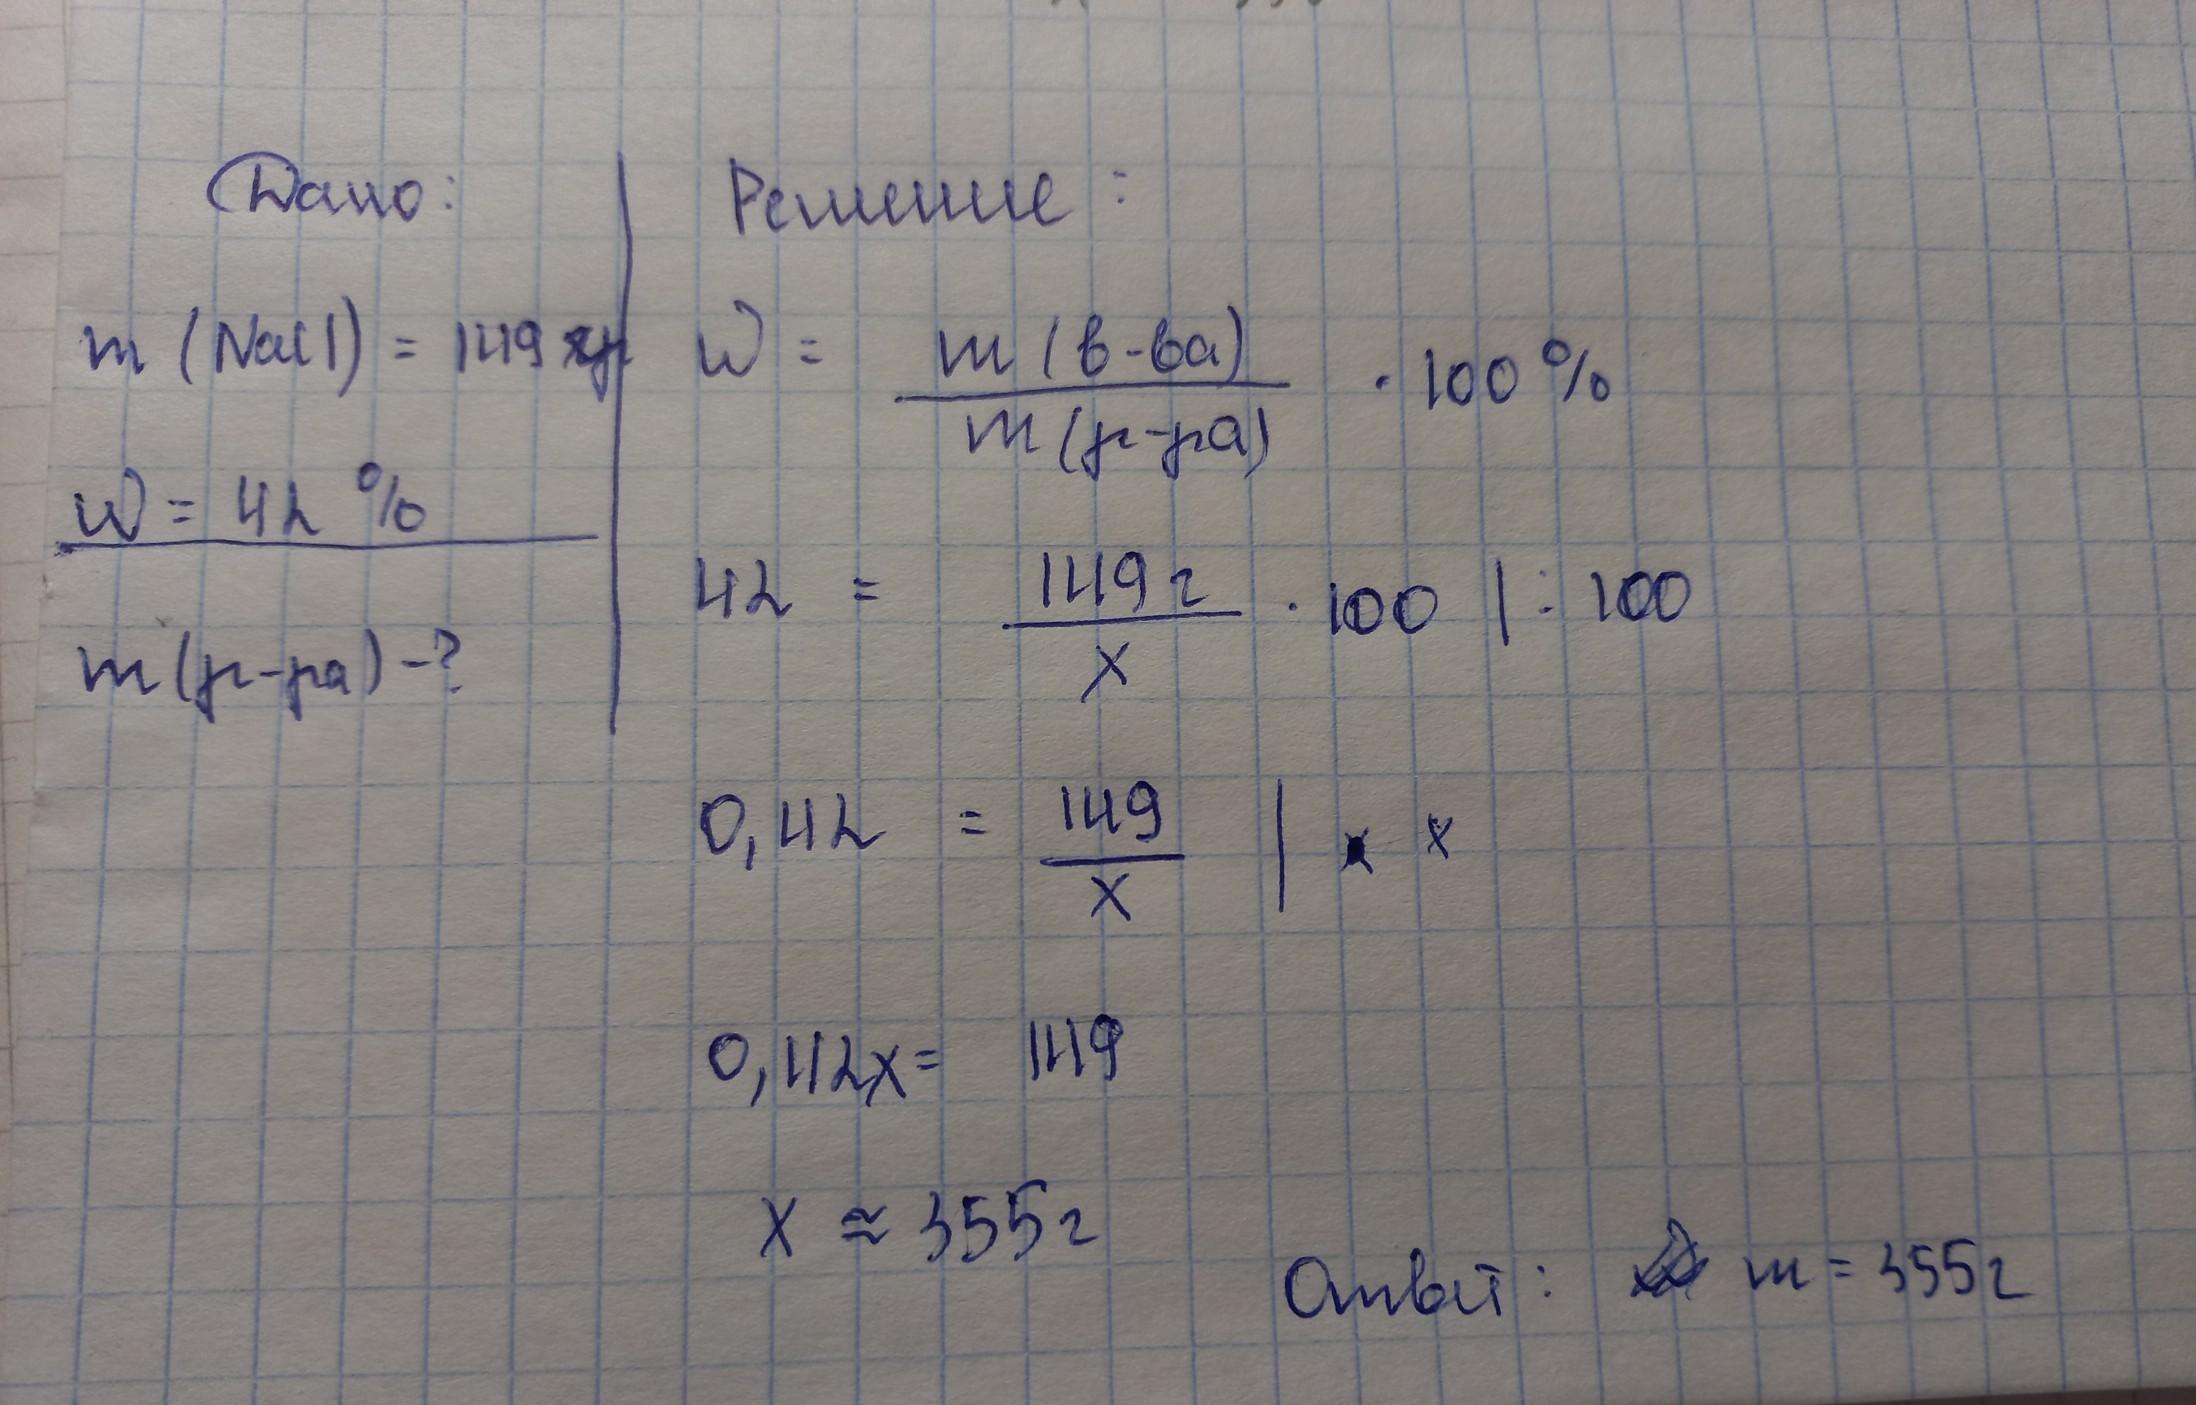 Дано:
m (NaCl) = 149 гр.
W = 42 %
m (р-ра) - ?
Решение :
W = m (в-ва) / m (р-ра) · 100 %
42 = 149 г / x · 100 | : 100
0,42 = 149 / x | · x
0,42x = 149
x ≈ 355 г
Ответ : m = 355 г